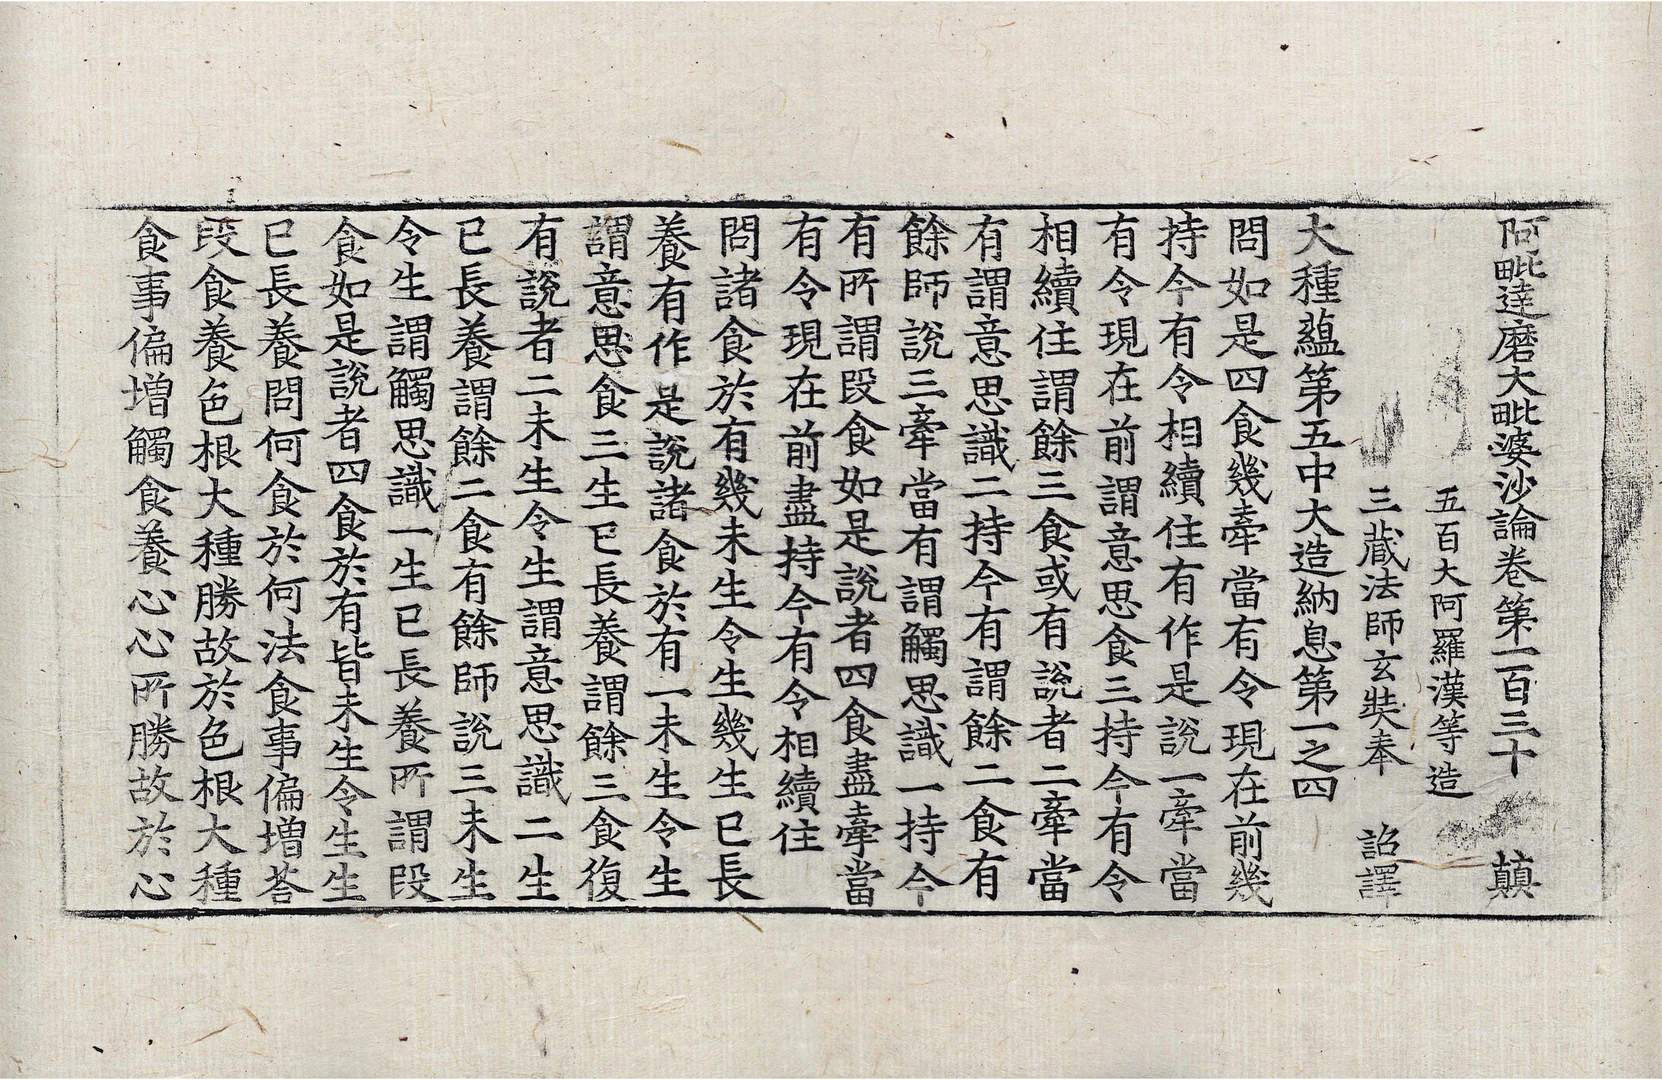 阿毗達磨大毗婆沙論卷第一百三十 顛
五百大阿羅漢等造
三藏法師玄奘奉 詔譯
大種蘊第五中大造納息第一之四
問如是四食幾牽當有令現在前幾
持今有令相續住有作是說一牽當
有令現在前謂意思食三持今有令
相續住謂餘三食或有說者二牽當
有謂意思識二持今有謂餘二食有
餘師說三牽當有謂觸思識一持今
有所謂段食如是說者四食盡牽當
有令現在前盡持今有令相續住
問諸食於有幾未生令生幾生已長
養有作是說諸食於有一未生令生
謂意思食三生已長養謂餘三食復
有說者二未生令生謂意思識二生
已長養謂餘二食有餘師說三未生
令生謂觸思識一生已長養所謂段
食如是說者四食於有皆未生令生生
已長養問何食於何法食事偏增荅
段食養色根大種勝故於色根大種
食事偏增觸食養心心所勝故於心